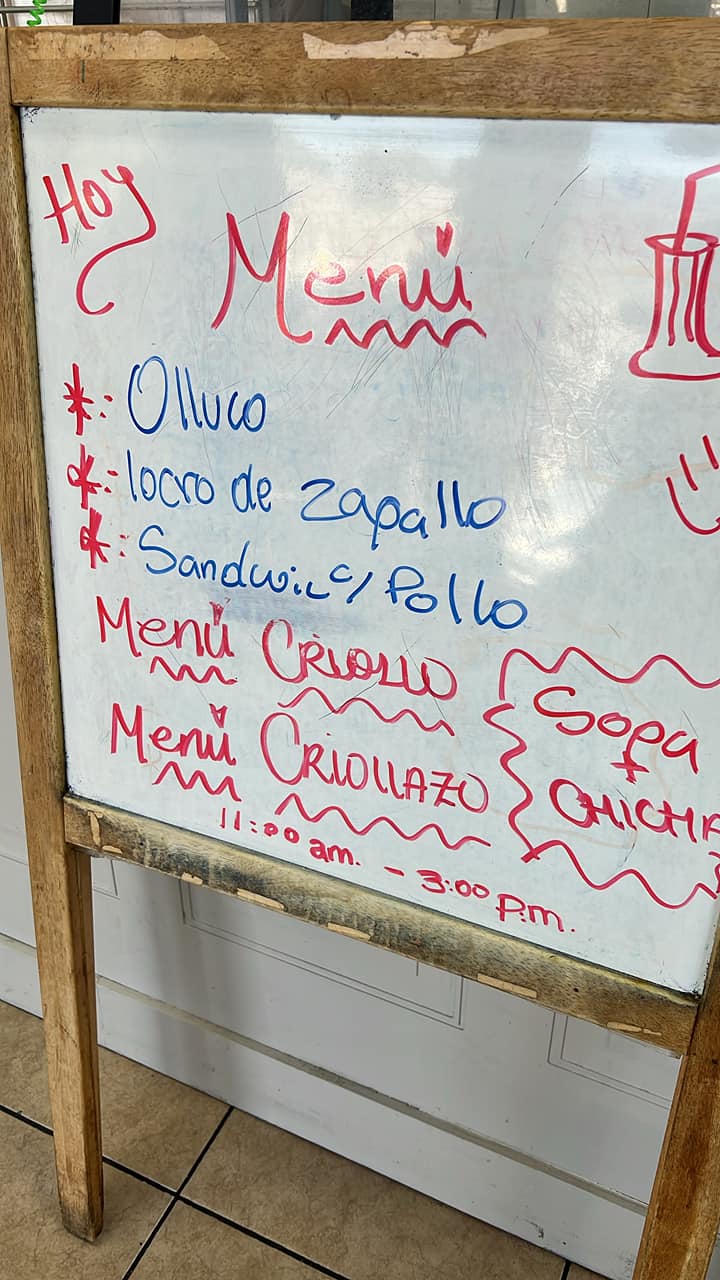 Hoy
Menú
*: Olluco
*: locro de zapallo
*: Sandwic c/ Pollo
Menú CRIOLLO
Menú CRIOLLAZO
Sopa
+
CHICHA
11:00 am. - 3:00 p.m.